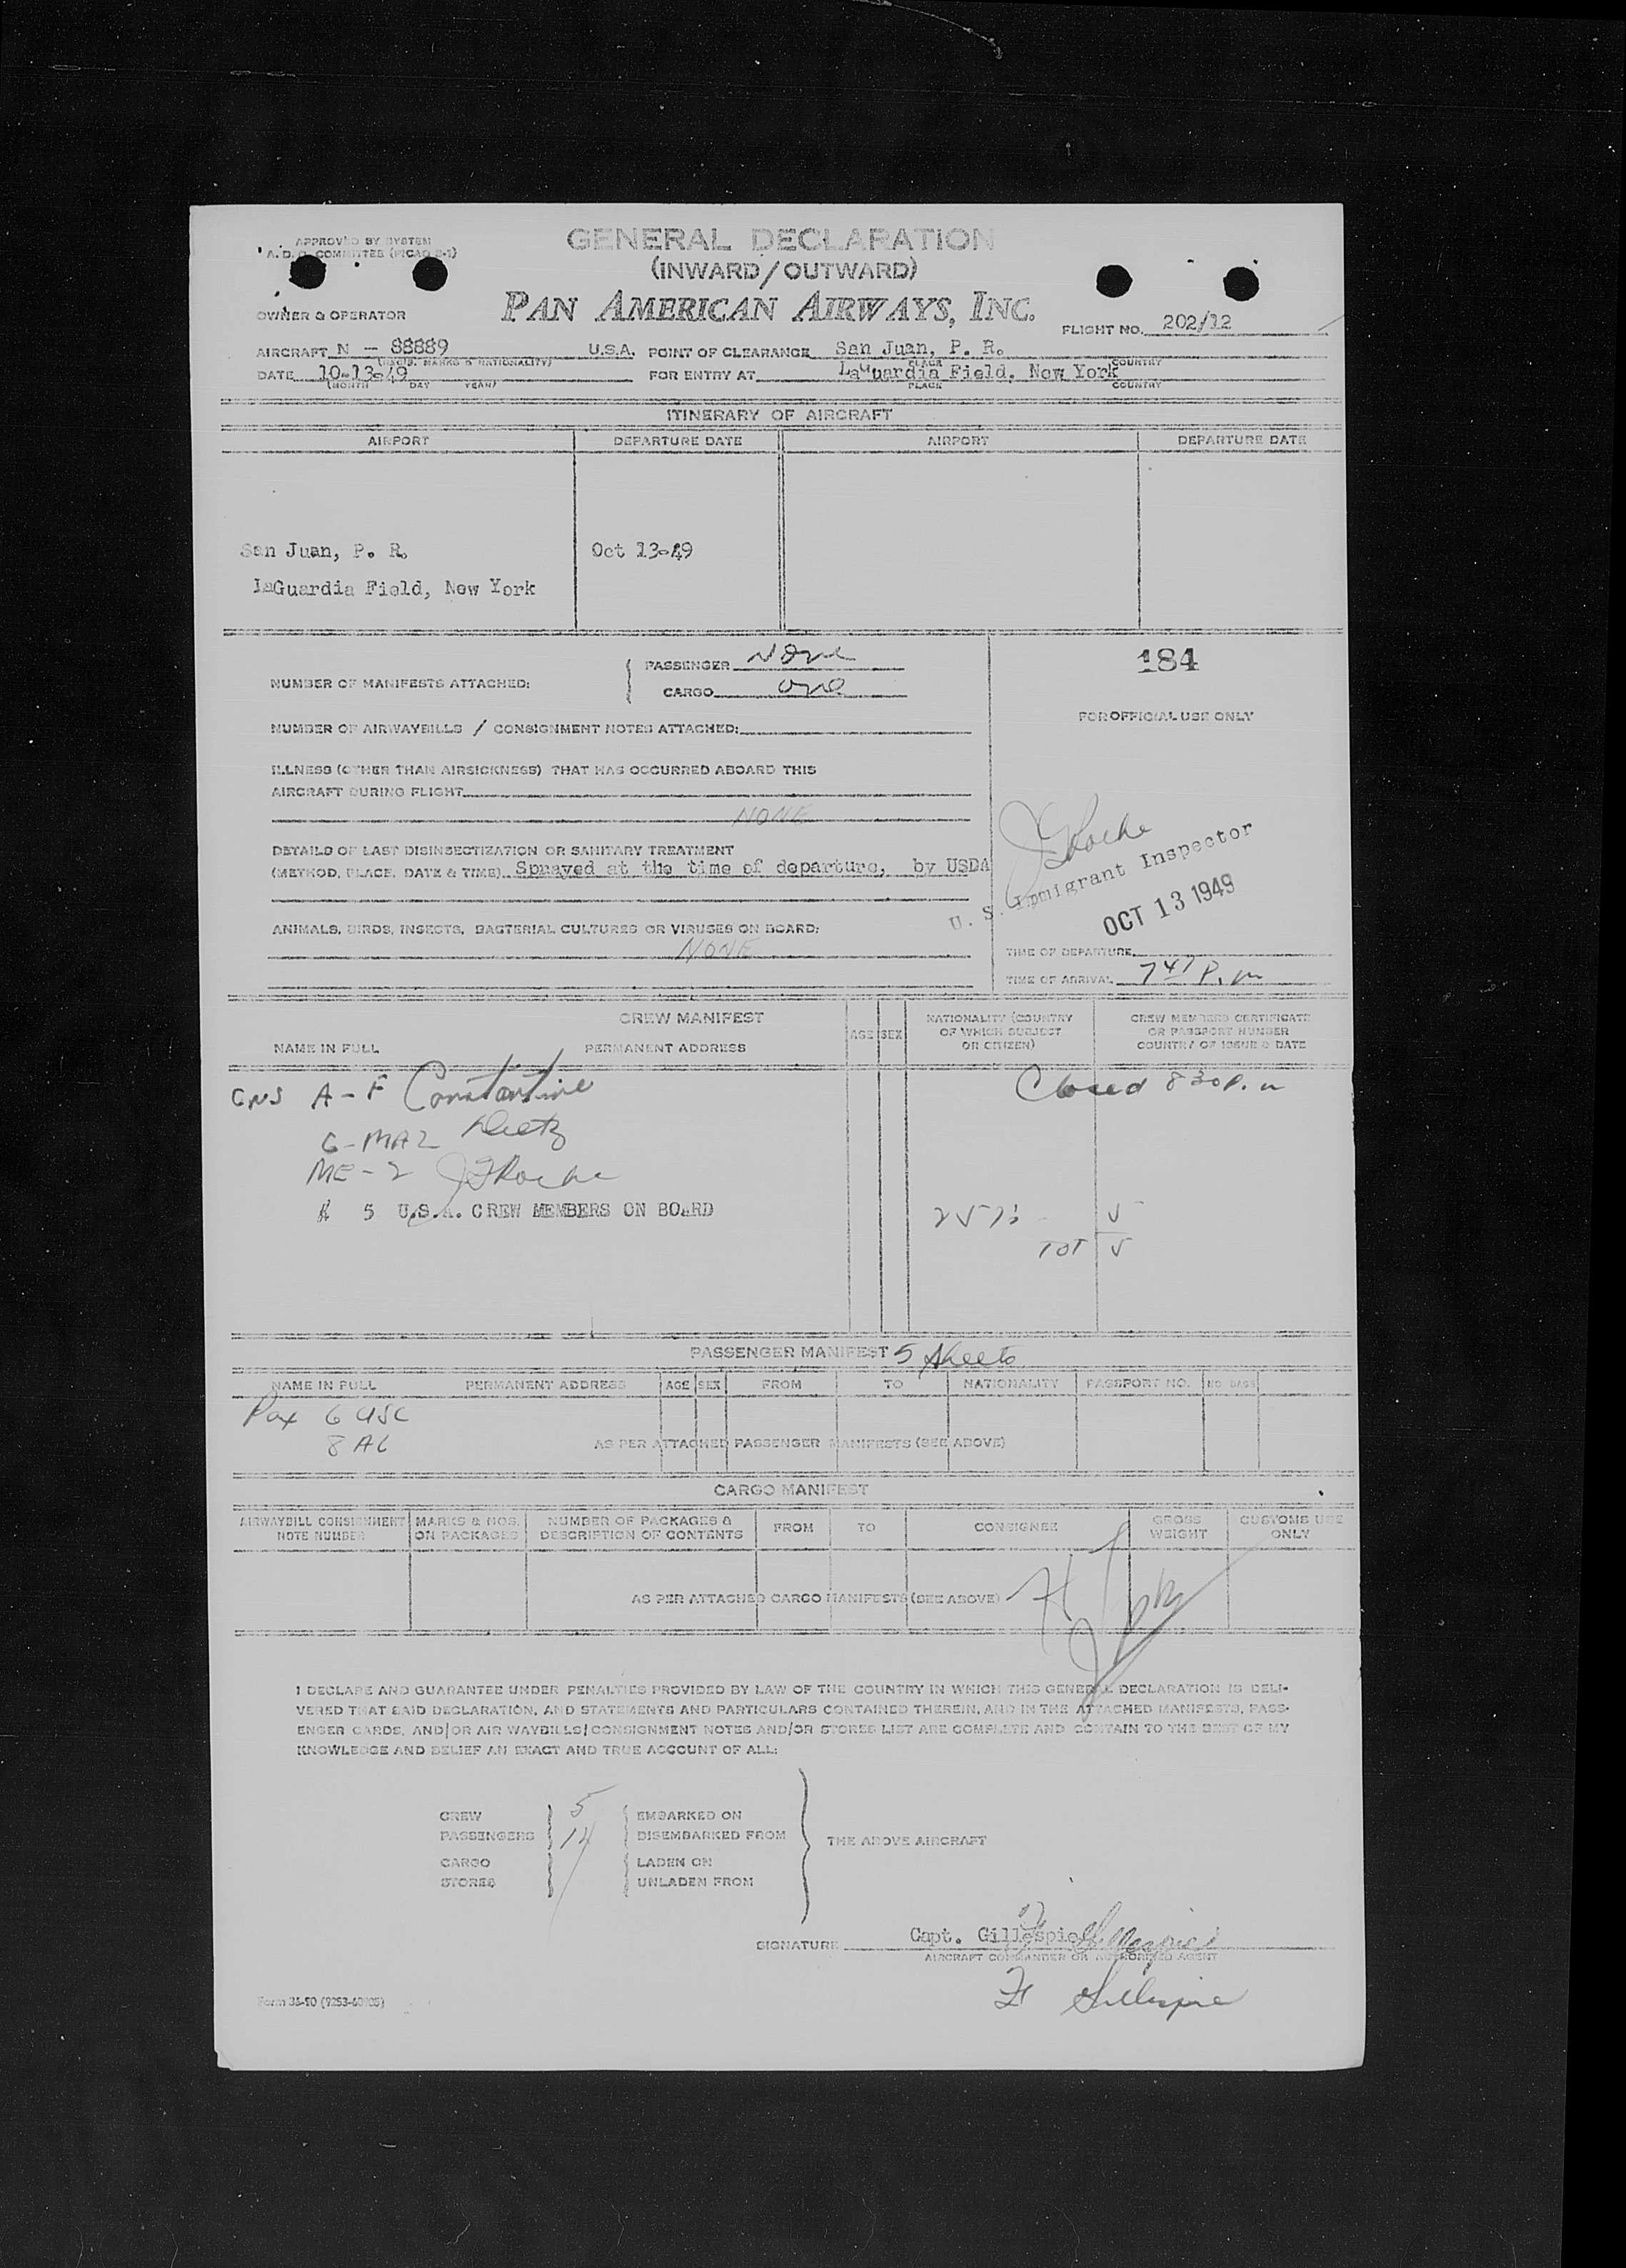 APPROVED BY SYSTEM
A. D. C. COMMITTEE (PICAO
GENERAL DECLARATION
(INWARD/OUTWARD)
PAN AMERICAN AIRWAYS, INC.
OWNER & OPERATOR
FLIGHT NO. 202/12
AIRCRAFT N - 88889 U.S.A. POINT OF CLEARANCE San Juan, P. R.
MARKS & NATIONALITY) PLACE COUNTRY
DATE 10-13-49 FOR ENTRY AT LaGuardia Field, New York
(MONTH) DAY YEAR) PLACE COUNTRY
ITINERARY OF AIRCRAFT
AIRPORT DEPARTURE DATE AIRPORT DEPARTURE DATE
San Juan, P. R. Oct 13-49
LaGuardia Field, New York
NUMBER OF MANIFESTS ATTACHED: PASSENGER None
CARGO one
184
FOR OFFICIAL USE ONLY
NUMBER OF AIRWAYBILLS / CONSIGNMENT NOTES ATTACHED:
ILLNESS (OTHER THAN AIRSICKNESS) THAT HAS OCCURRED ABOARD THIS
AIRCRAFT DURING FLIGHT
NONE
DETAILS OF LAST DISINSECTIZATION OR SANITARY TREATMENT
(METHOD, PLACE, DATE & TIME) Sprayed at the time of departure, by USDA
ANIMALS, BIRDS, INSECTS, BACTERIAL CULTURES OR VIRUSES ON BOARD:
NONE
Roche
U. S. Immigrant Inspector
OCT 13 1949
TIME OF DEPARTURE
TIME OF ARRIVAL 7 47 P.m
CREW MANIFEST
NAME IN FULL PERMANENT ADDRESS AGE SEX NATIONALITY (COUNTRY OF WHICH SUBJECT OR CITIZEN) CREW MEMBERS CERTIFICATE OR PASSPORT NUMBER COUNTRY OF ISSUE & DATE
A-F Constantine Closed 8 30 P. m
Deetz
ME-2 Roche
5 U.S.A. CREW MEMBERS ON BOARD
TOT 5
PASSENGER MANIFEST 5 sheets
NAME IN FULL PERMANENT ADDRESS AGE SEX FROM TO NATIONALITY PASSPORT NO. NO. BAGS
Pax 6 USC
8 AL
AS PER ATTACHED PASSENGER MANIFESTS (SEE ABOVE)
CARGO MANIFEST
AIRWAYBILL CONSIGNMENT NOTE NUMBER MARKS & NOS. ON PACKAGES NUMBER OF PACKAGES & DESCRIPTION OF CONTENTS FROM TO CONSIGNEE GROSS WEIGHT CUSTOMS USE ONLY
AS PER ATTACHED CARGO MANIFESTS (SEE ABOVE)
I DECLARE AND GUARANTEE UNDER PENALTIES PROVIDED BY LAW OF THE COUNTRY IN WHICH THIS GENERAL DECLARATION IS DELI-
VERED THAT SAID DECLARATION, AND STATEMENTS AND PARTICULARS CONTAINED THEREIN, AND IN THE ATTACHED MANIFESTS, PASS-
ENGER CARDS, AND/OR AIR WAYBILLS/CONSIGNMENT NOTES AND/OR STORES LIST ARE COMPLETE AND CONTAIN TO THE BEST OF MY
KNOWLEDGE AND BELIEF AN EXACT AND TRUE ACCOUNT OF ALL:
CREW 5 EMBARKED ON
PASSENGERS 14 DISEMBARKED FROM
THE ABOVE AIRCRAFT
CARGO LADEN ON
STORES UNLADEN FROM
SIGNATURE Capt. Gillespie
AIRCRAFT COMMANDER OR AUTHORIZED AGENT
Gillespie